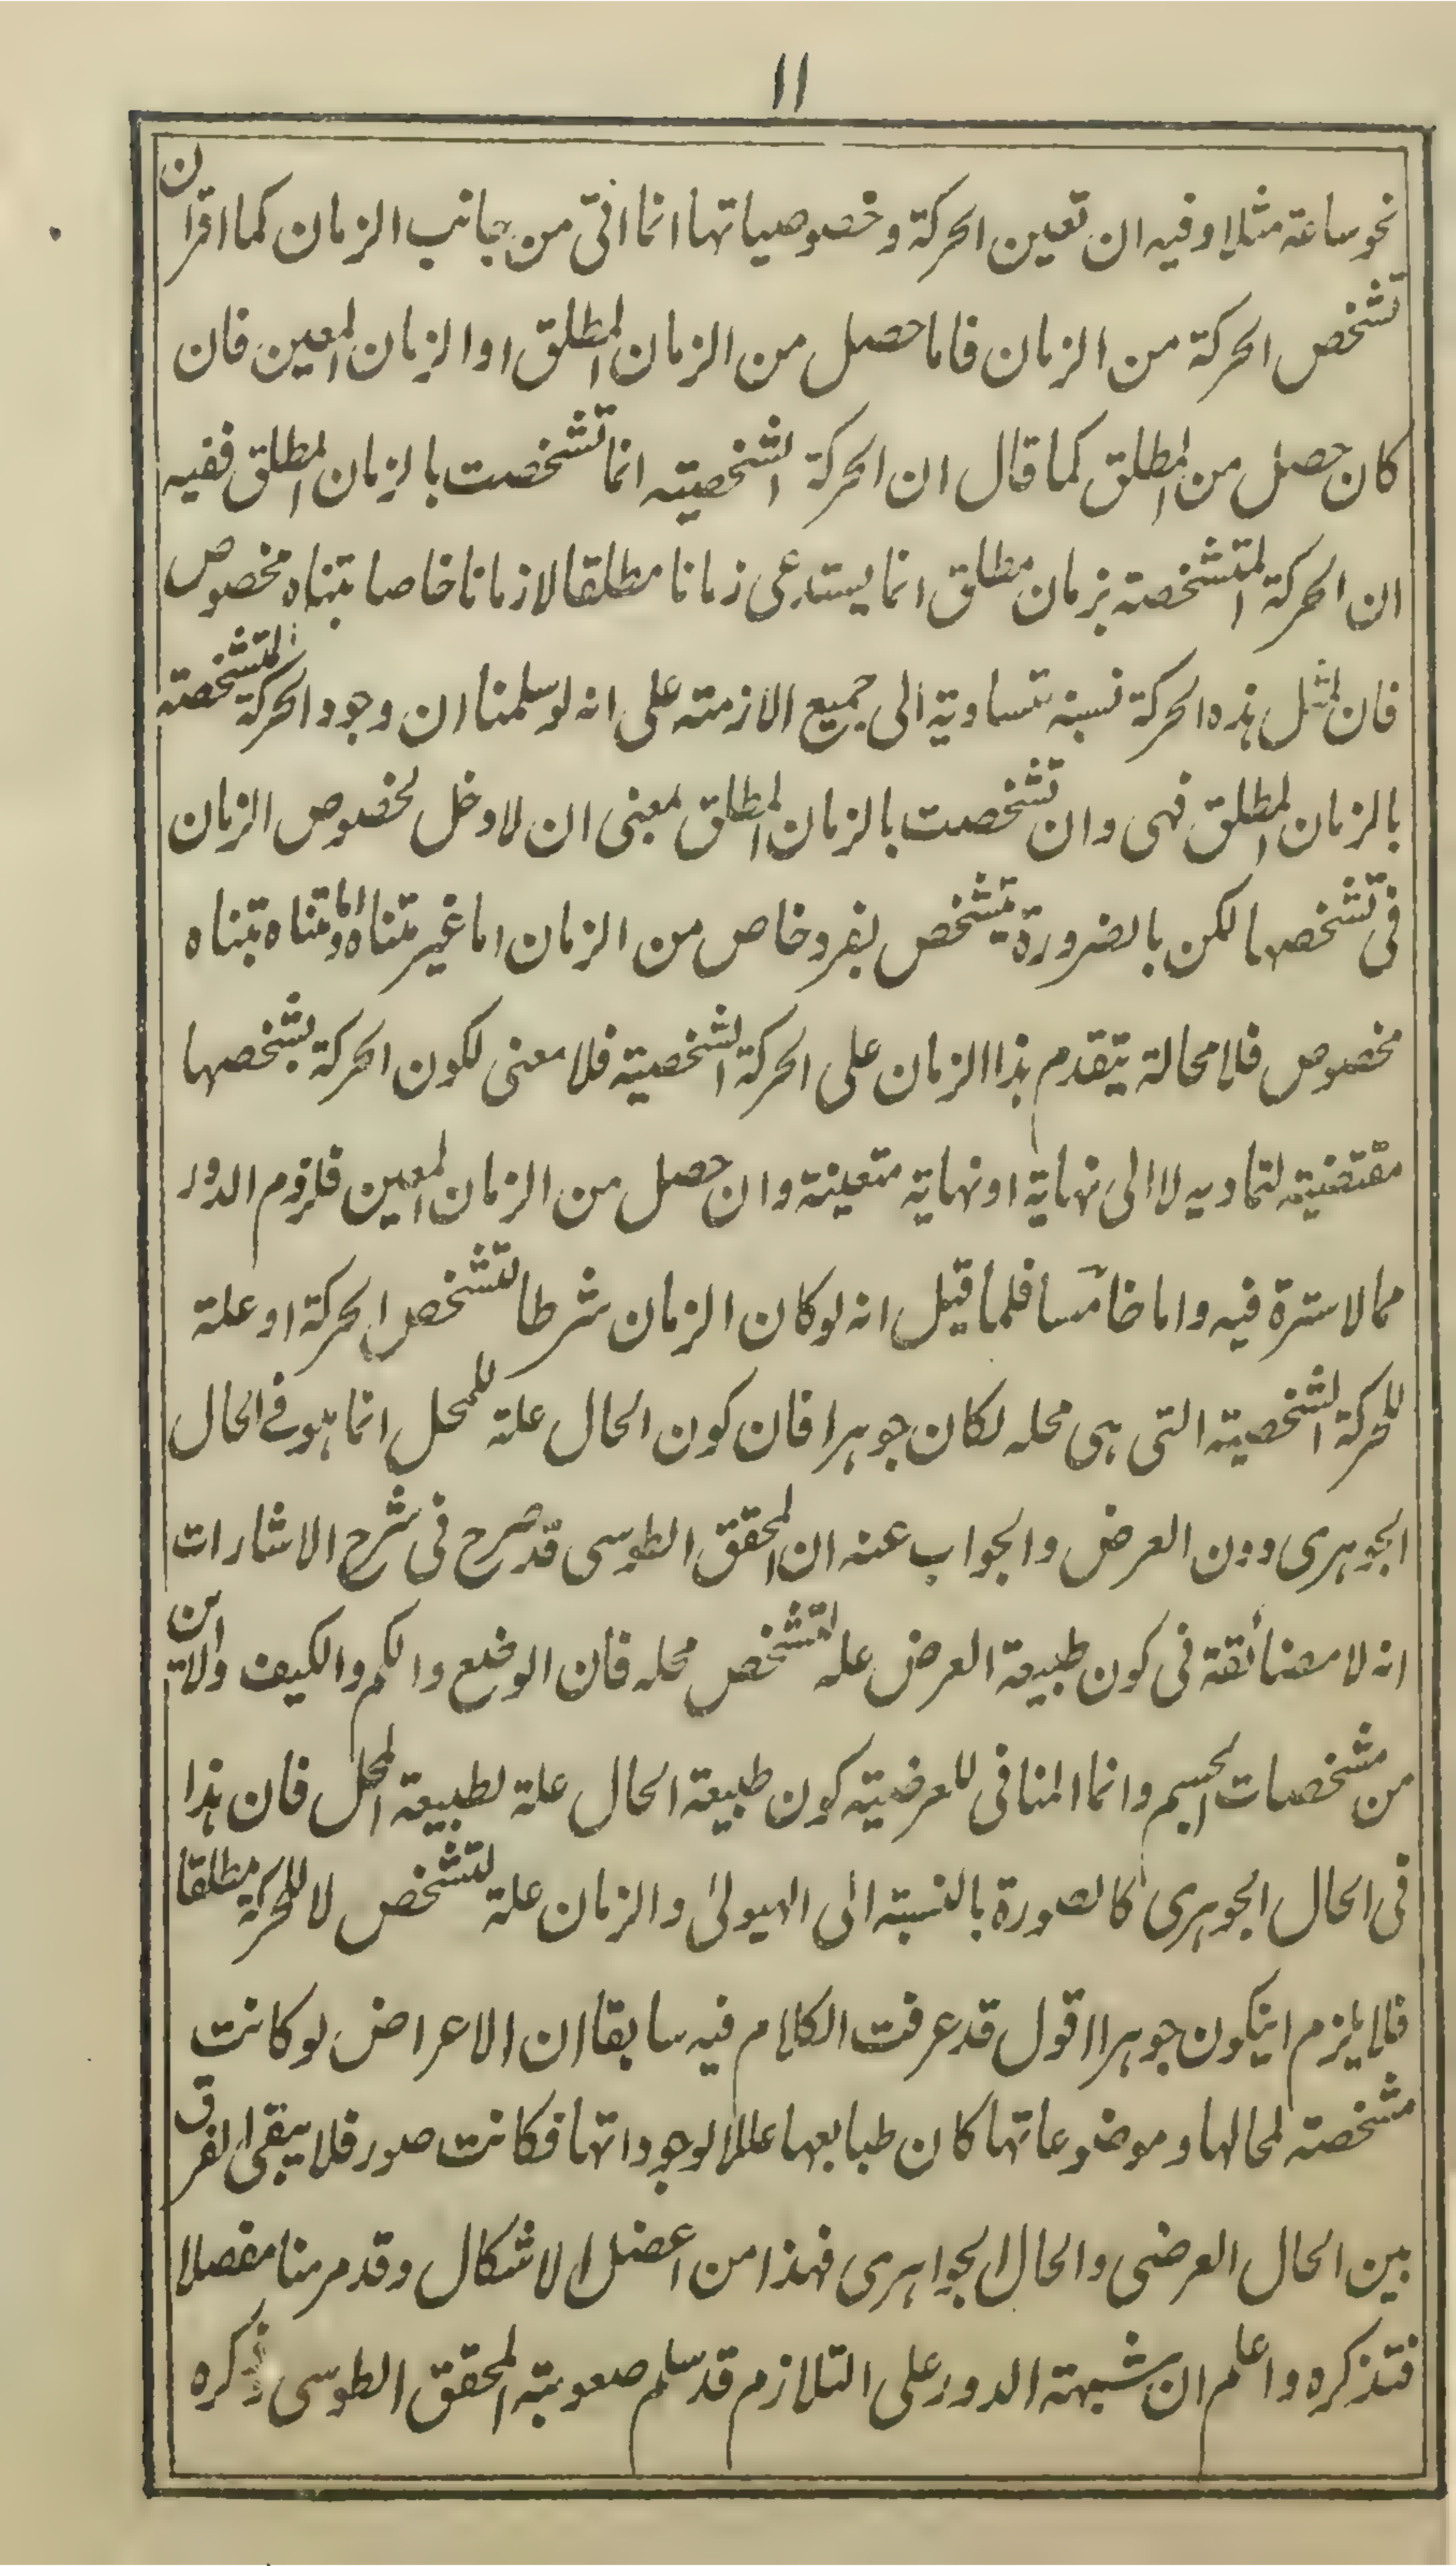 ١١
نحو ساعة مثلا وفيه ان تعين الحركة وخصوصياتها انما اتى من جانب الزمان كما اقرا ن
تشخص الحركة من الزمان فاما حصل من الزمان المطلق او الزمان المعين فان
كان حصل من المطلق كما قال ان الحركة الشخصية انما تشخصت بالزمان المطلق ففيه
ان الحركة المتشخصة بزمان مطلق انما يستدعى زمانا مطلقا لا زمانا خاصا بتناه مخصوص
فان لمثل هذه الحركة نسبة متساوية الى جميع الازمنة على انه لو سلمنا ان وجود الحركة المتشخصة
بالزمان المطلق فهى وان تشخصت بالزمان المطلق بمعنى ان لا دخل لخصوص الزمان
فى تشخصها لكن بالضرورة يتشخص بفرد خاص من الزمان اما غير متناه واما متناه بتناه
مخصوص فلا محالة يتقدم هذا الزمان على الحركة الشخصية فلا معنى لكون الحركة بشخصها
مقتضية لتماديه لا الى نهاية او نهاية متعينة وان حصل من الزمان المعين فلزوم الدور
مما لا سترة فيه واما خامسا فلما قيل انه لو كان الزمان شرطا لتشخص الحركة او علة
للحركة الشخصية التى هى محله لكان جوهرا فان كون الحال علة للمحل انما هو فے الحال
الجوهرى دون العرض والجواب عنه ان المحقق الطوسى قد صرح فى شرح الاشارات
انه لا مضائقة فى كون طبيعة العرض علة لتشخص محله فان الوضع والكم والكيف والاين
من مشخصات الجسم وانما المنافى للعرضية كون طبيعة الحال علة لطبيعة المحل فان هذا
فى الحال الجوهرى كالصورة بالنسبة الى الهيولى والزمان علة لتشخص لا للحركة مطلقا
فلا يلزم ان يكون جوهرا اقول قد عرفت الكلام فيه سابقا ان الاعراض لو كانت
مشخصة لمحالها وموضوعاتها كان طبايعها عللا لوجوداتها فكانت صور فلا يبقى الفرق
بين الحال العرضى والحال الجواهرى فهذا من اعضل الاشكال وقد مر منا مفصلا
فتذكره واعلم ان شبهة الدور على التلازم قد سلم صعوبته المحقق الطوسى ذكره